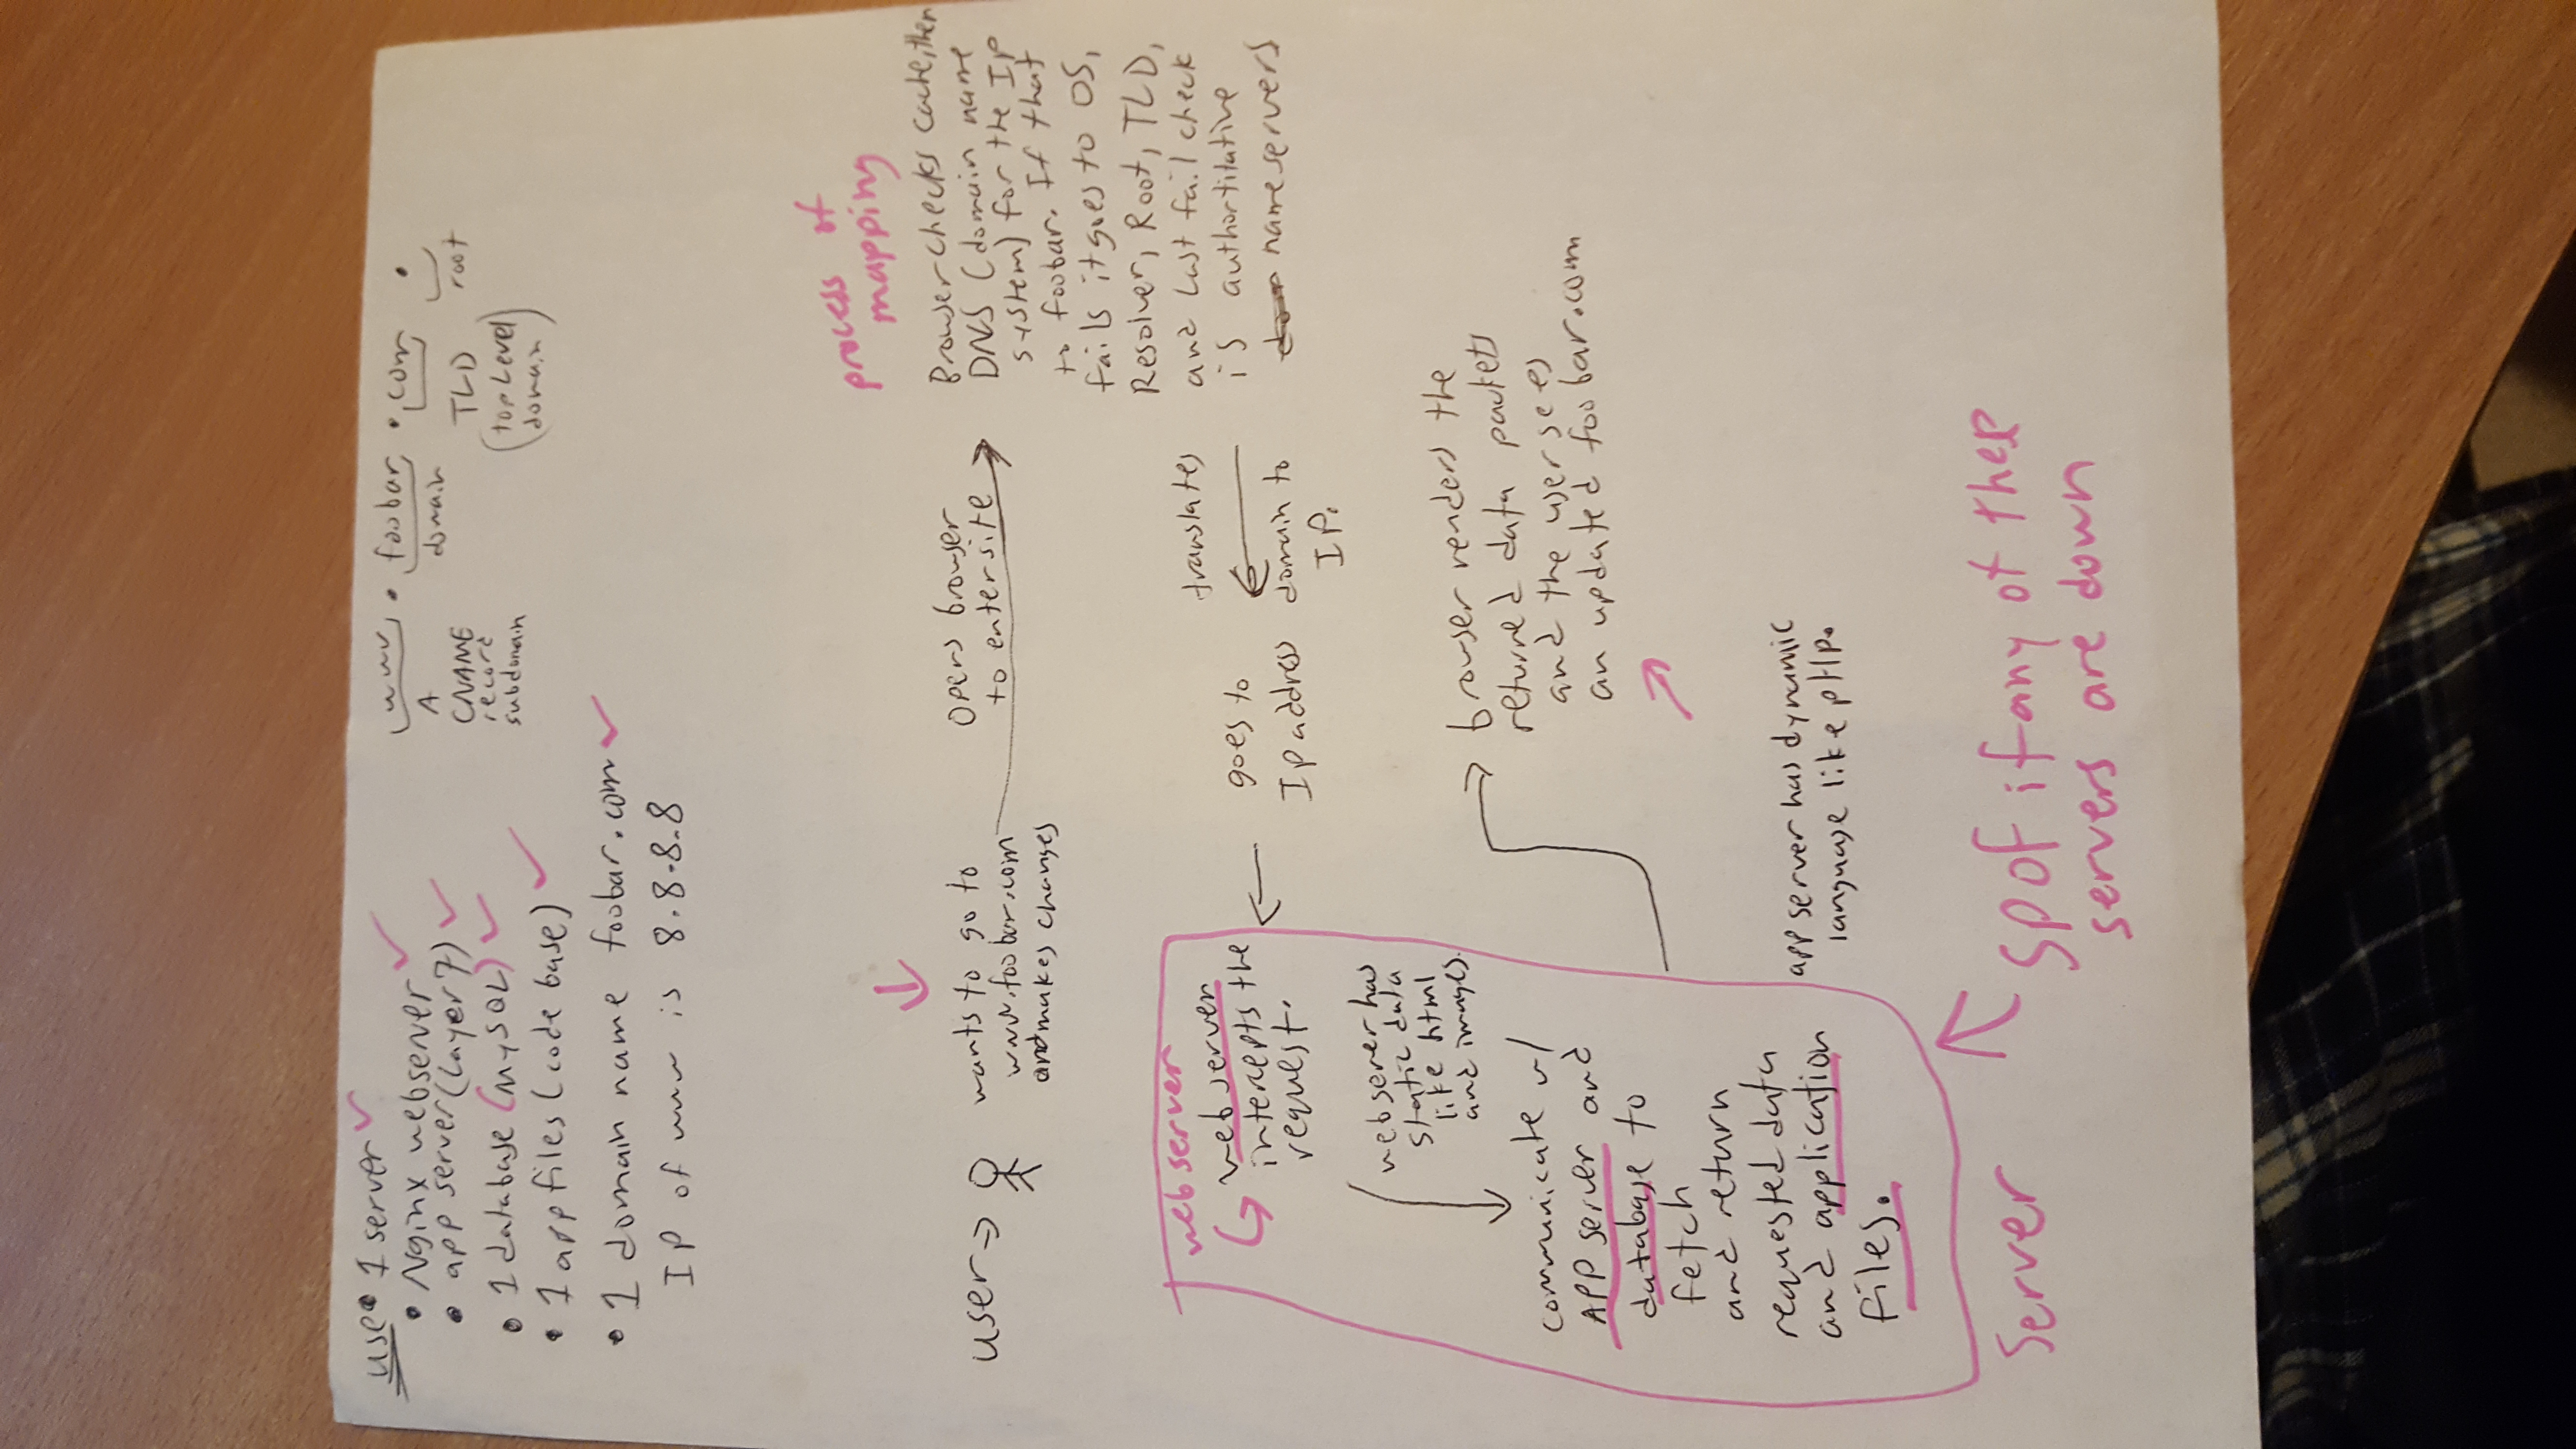 use • 1 server ✓
• Nginx webserver ✓
• app server (Layer 7) ✓
• 1 database (MySQL) ✓
• 1 app files (code base) ✓
• 1 domain name foobar.com ✓
IP of www is 8.8.8.8
www . foobar . com .
A
CNAME
record
subdomain
domain
TLD
(top Level
domain)
root
process of
mapping
user →
wants to go to
www.foobar.com
and makes changes
Opens browser
to enter site
Browser checks cache, then
DNS (domain name
system) for the IP
to foobar. If that
fails it goes to OS,
Resolver, Root, TLD,
and last fail check
is authortitative
name servers
translates
domain to
IP.
goes to
Ip address
web server
web server
intercepts the
request.
web server has
static data
like html
and images.
communicate w/
APP server and
database to
fetch
and return
requested data
and application
files.
browser renders the
returned data packets
and the user sees
an updated foobar.com
app server has dynamic
language like pHp.
Server
SPOF if any of these
servers are down